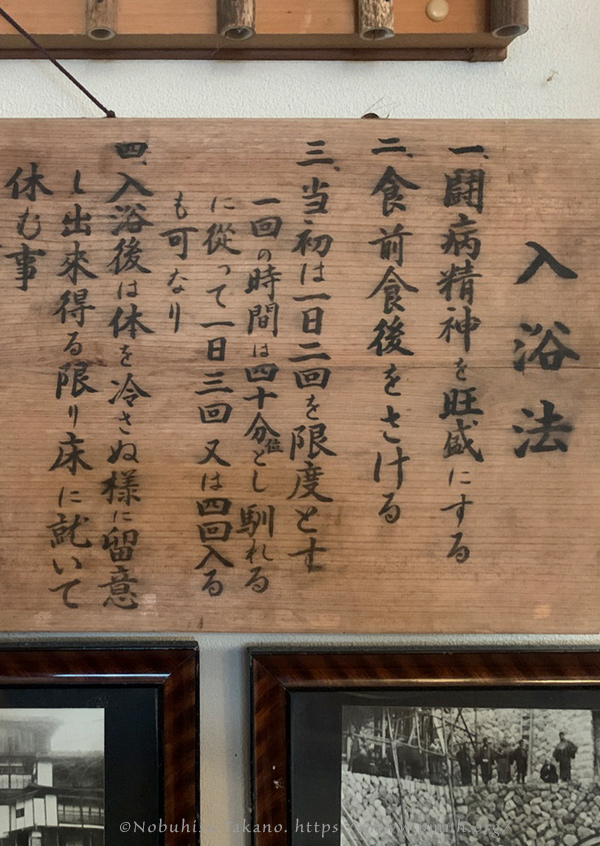 入浴法
一、闘病精神を旺盛にする
二、食前食後をさける
三、当初は一日二回を限度とす
一回の時間は四十分位とし馴れる
に従って一日三回又は四回入る
も可なり
四、入浴後は体を冷さぬ様に留意
し出來得る限り床に就いて
休む事